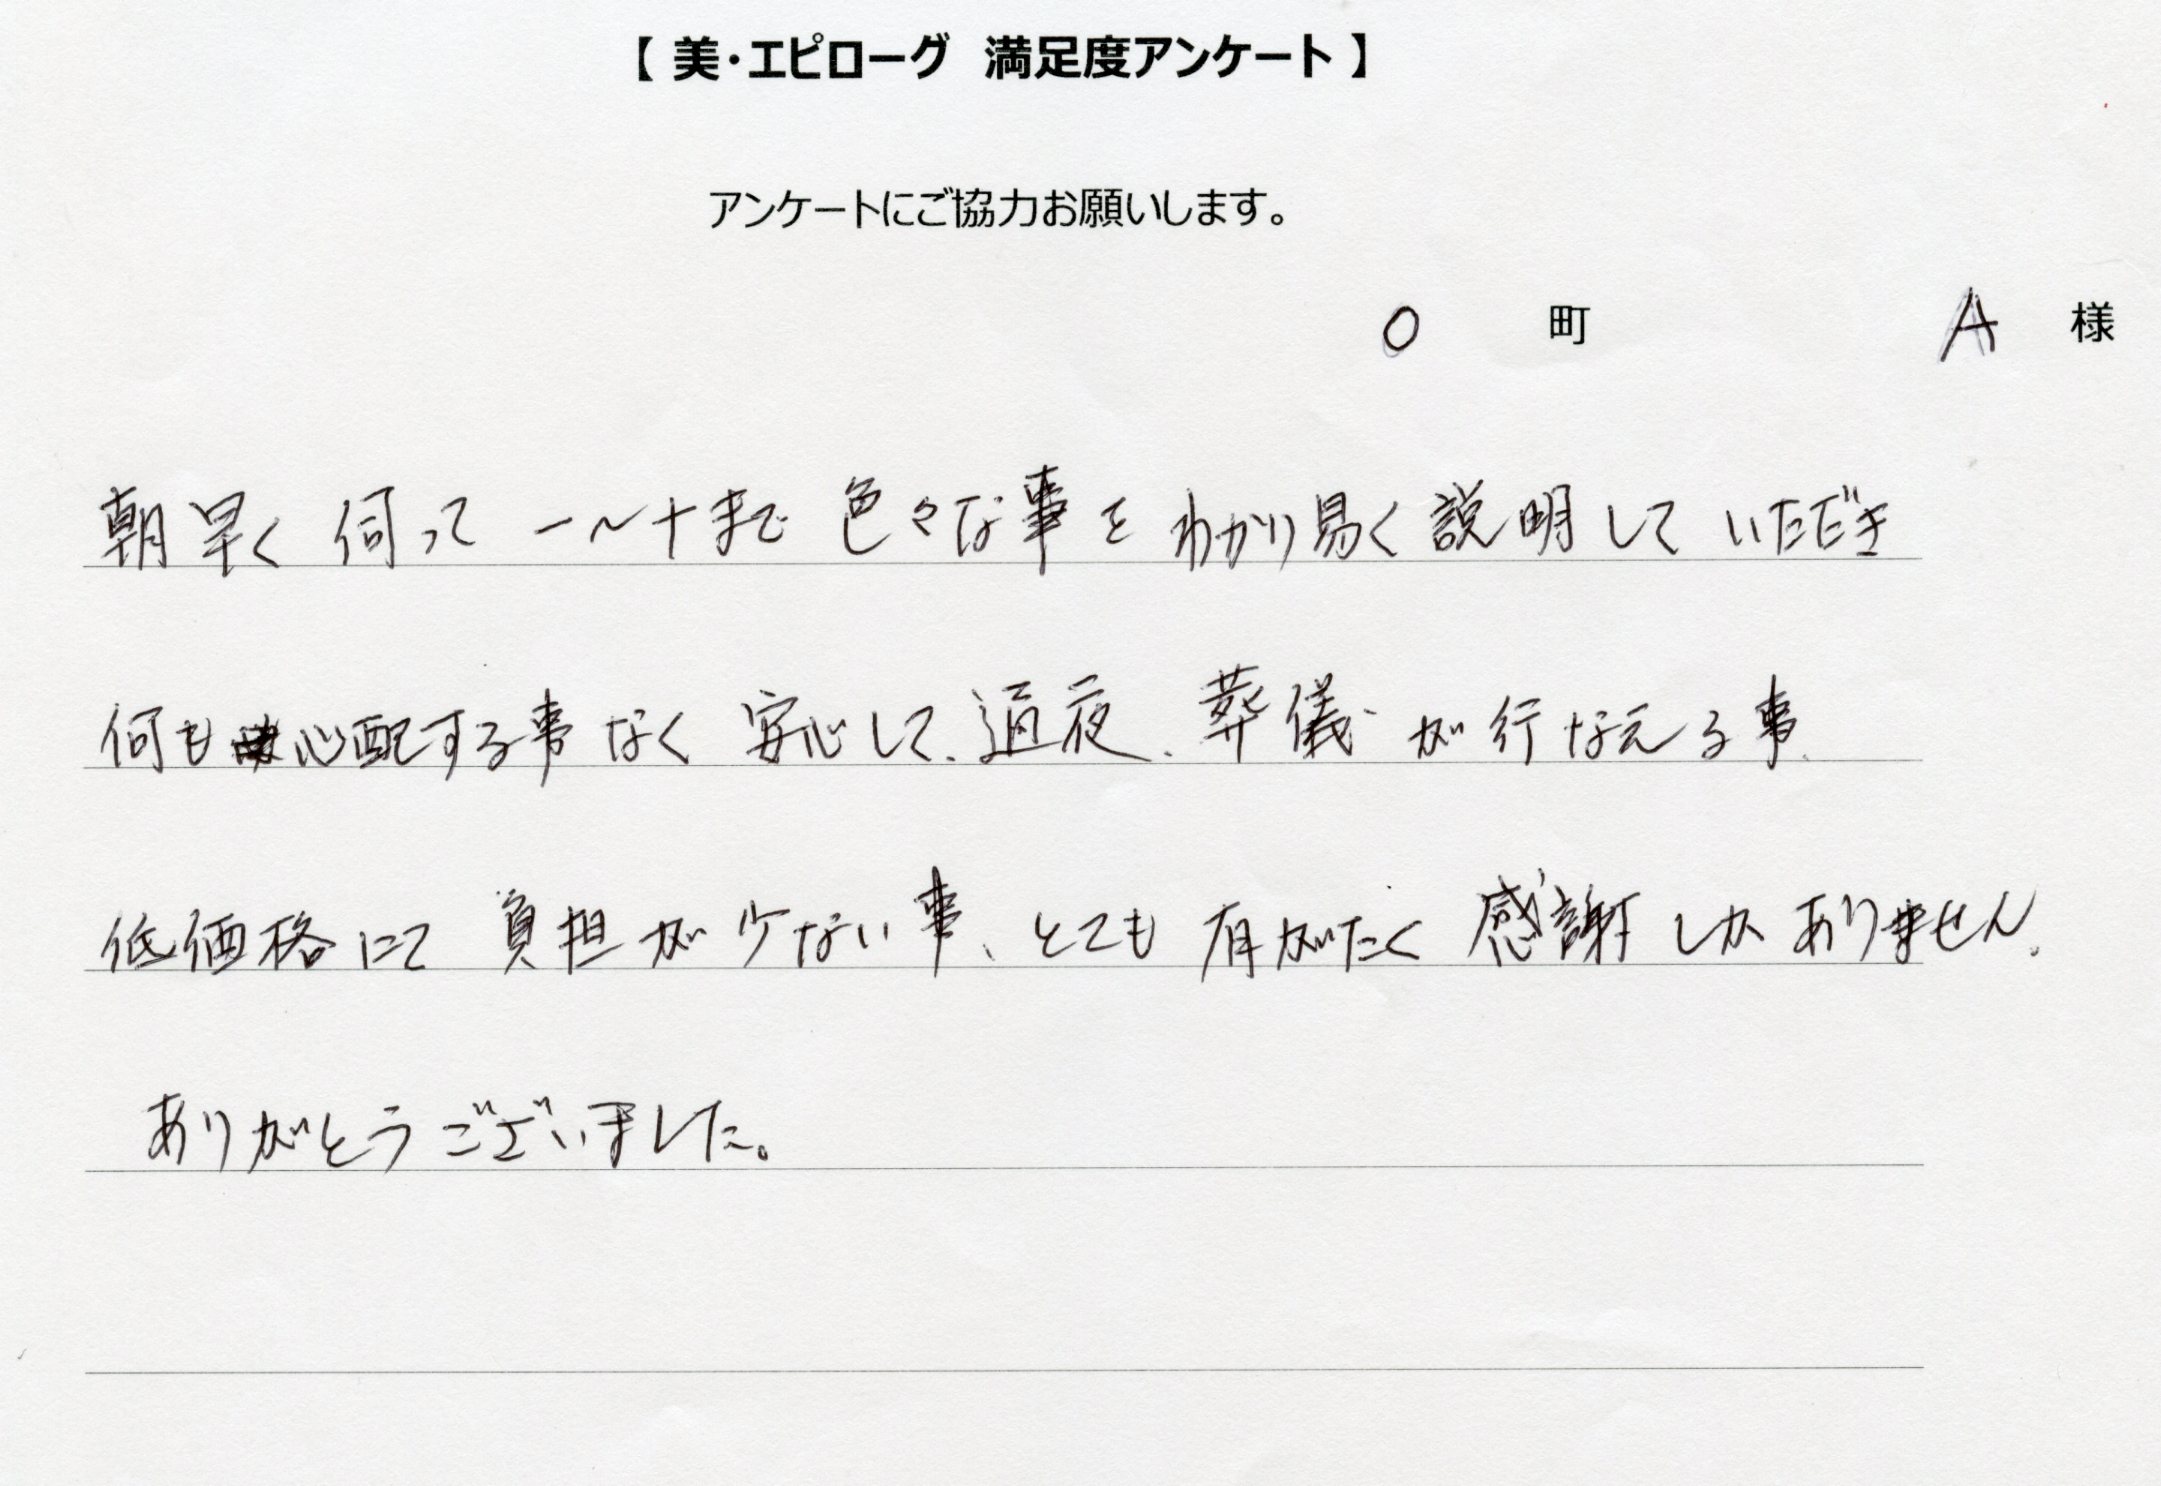 【 美・エピローグ 満足度アンケート 】
アンケートにご協力お願いします。
O 町 A 様
朝早く 伺って 一〜十まで 色々な事を わかり易く 説明して いただき
何も心配する事なく 安心して、通夜、葬儀が行なえる事、
低価格にて 負担が少ない事、とても 有がたく 感謝しかありません。
ありがとうございました。